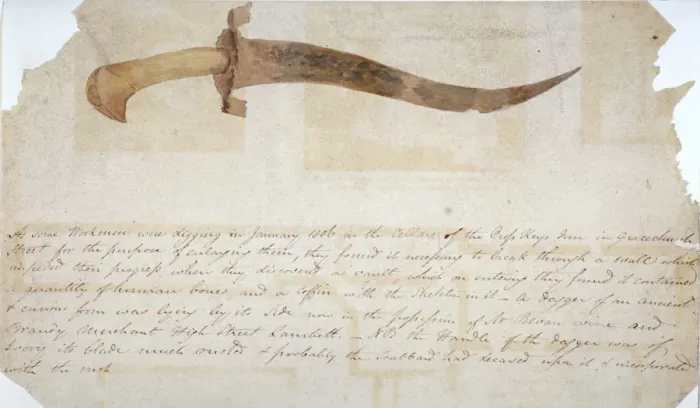 As some Workmen were digging in January 1806 in the Cellars of the Cross Keys Inn in Gracechurch
Street for the purpose of enlarging them, they found it necessary to break through a wall which
impeded their progress when they discovered a vault, which on entering they found it contained
a quantity of human bones, and a Coffin with the Skeleton in it – a dagger of an ancient
& curious form was lying by its side now in the possession of Mr Bevan wine and
Brandy Merchant High Street Lambeth. – NB the Handle of the dagger was of
Ivory its blade much rusted & probably the Scabbard had decased upon it & incorporated
with the rust